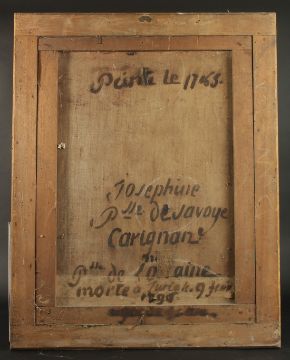 Peinte le 1765.
Josephine
Psse de Savoye
Carignane
Psse de Loraine
morte à Turin le 9 feuv